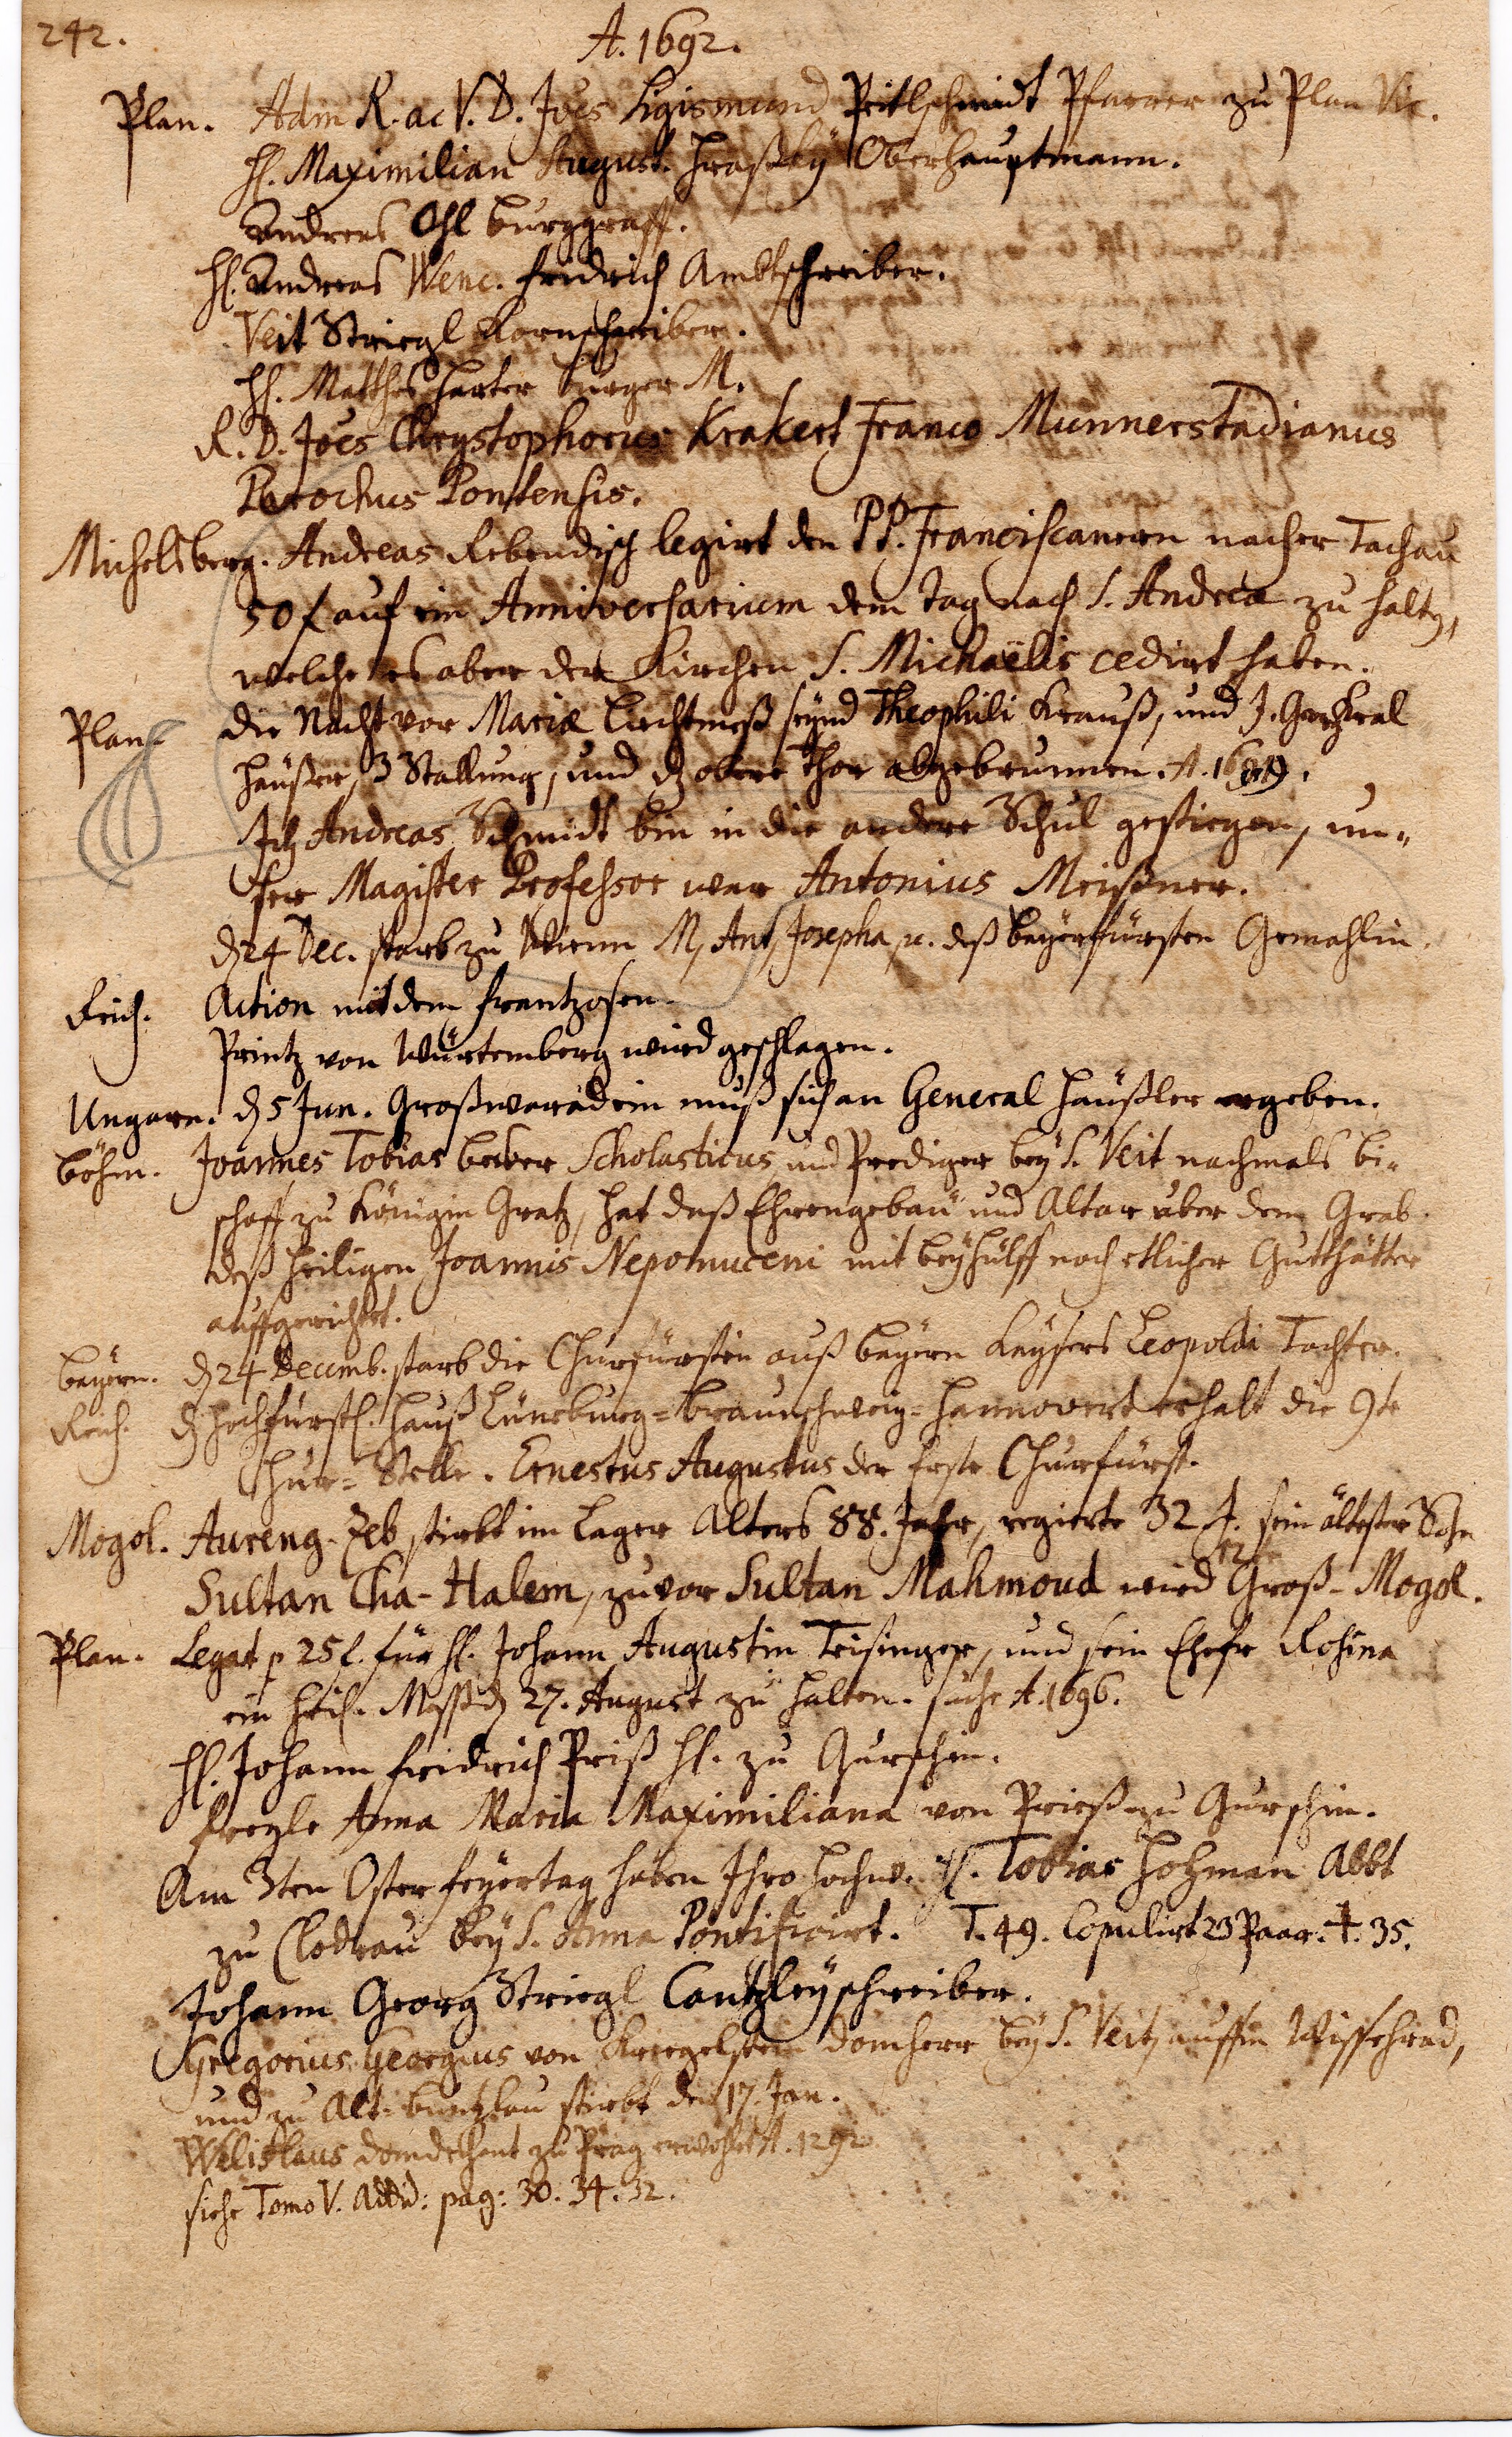 242.
A. 1692.
Plan. Adm R. ac V. D. Joes Sigismund Pritlschmidt Pfarrer zu Plan Vic.
H. Maximilian August. Hrassky Oberhauptmann.
Andreas Ohl burggraff.
H. Andreas Wenc. fridrich Ambtschreiber.
Veit Striegl Kornschreiber.
H. Matthes Harter burger M.
R. D. Joes Chrystophorus Krakert Franco Munnerstadianus
Parochus Pontensis.
Michelsberg. Andreas Rebendisch legirt den PP. Franciscanern nacher Tachau
50 f auf ein Anniversarium dem tag nach S. Andrea zu halten,
welche es aber der Kirchen S. Michaëlis cedirt haben.
Plan. die Nacht vor Mariæ Liechtmeß seynd Theophili Krauß, und J.
häußer, 3 Stallung, und dz obere thor abgebrunnen. A.
Ich Andreas Schmidt bin in die andere Schul gestiegen, un=
ser Magister Professor war Antonius Meißner.
d 24 Dec. starb zu Wienn M, Ant, Josepha, r. deß bayerfürsten Gemahlin.
Reich. Action mit dem frantzosen.
Printz von Würtemberg wird geschlagen.
Ungarn. d 5 Jun. Großwaradein muß sich an General Häußler ergeben.
böhm. Joannes Tobias becker Scholasticus und Prediger bey S. Veit nachmals bi=
schoff zu Königin Gratz, hat daß Ehrengebäu und Altar über dem Grab
deß heiligen Joannis Nepomuceni mit beyhülff noch etlicher Gutthätter
auffgerichtet.
bayern. d 24 Decemb. starb die Churfürstin auß bayern Kaysers Leopoldi Tochter.
Reich. dz Hochfürstl. Hauß Lüneburg=braunschweig=Hannover erhalt die 9te
Chur=Stelle. Ernestus Augustus der Erste Churfürst.
Mogol. Aureng-Zeb stirbt im Lager Alters 88. Jahr, regierte 32 J. sein ältester Sohn
Sultan Cha-Halem, zuvor Sultan Mahmoud wird Groß-Mogol.
Plan. Legat p 25 f. für H. Johann Augustin Trisinger, und sein Ehefr Rosina
ein heil. Meß d 27. August zu halten. siehe A. 1696.
H. Johann fridrich Priß H. zu Gurschin.
freyle Anna Maria Maximiliana von Prieß zu Gurschin.
Am 3ten Osterfeyertag haben Ihro Hochw. H. Tobias Hohman Abbt
zu Clodrau bey S. Anna Pontificirt. T. 49. Copulirt 23 Paar. †. 35.
Johann Georg Striegl Cantzleyschreiber.
Gregorius Georgius von Kriegelstein domherr bey S. Veit, auffm Wissehrad,
und zu Alt-buntzlau stirbt den 17. Jan.
Welislaus domdechant zu Prag erwöhlt A. 1292
siehe Tomo V. Addit: pag: 30. 34. 32.